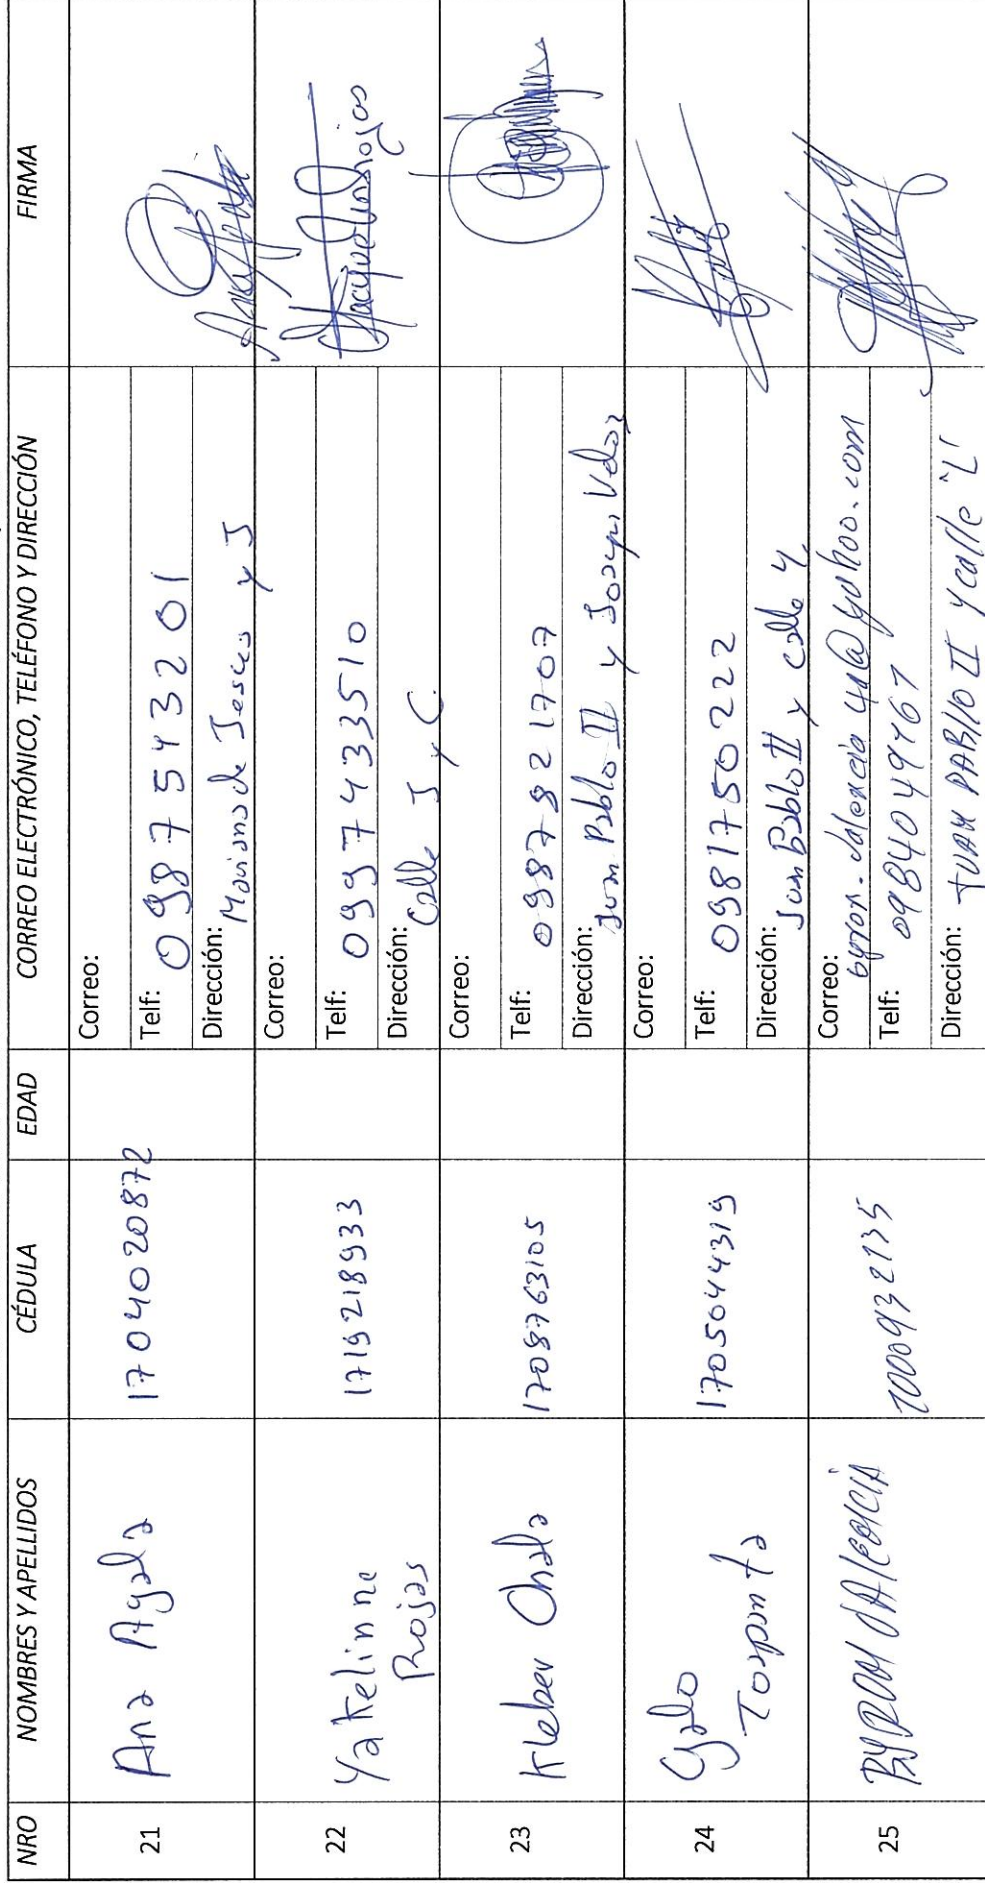 NRO NOMBRES Y APELLIDOS CÉDULA EDAD CORREO ELECTRÓNICO, TELÉFONO Y DIRECCIÓN FIRMA
21 Ana Ayala 1704020872
Correo:
Telf: 0987543201
Dirección: Mariana de Jesus y J
22 Yakelinne
Rojas
1719218933
Correo:
Telf: 0997433510
Dirección: Calle J y C
Jacquelin Rojas
23 Kleber Chala 1708763105
Correo:
Telf: 0987821707
Dirección: Juan Pablo II y
24 Galo
1705044319
Correo:
Telf: 0981750222
Dirección: Juan Pablo II y calle 4
25 BYRON VALENCIA 1000932135
Correo:
Telf: 0984049467
Dirección: JUAN PABLO II y calle "L"